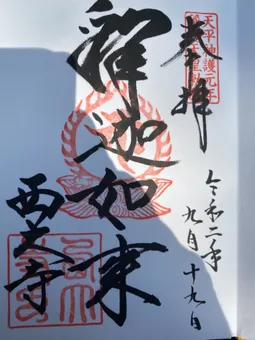 奉拝
天平神護元年
釈迦如来
西大寺
令和二年
九月十九日